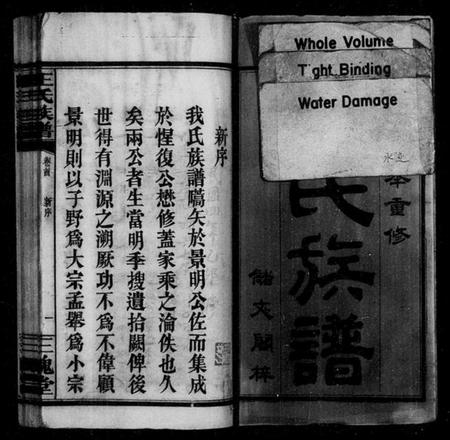 Whole Volume
Tight Binding
Water Damage
水迹
本重修
氏族譜
儲文閣梓
新序
我氏族譜嚆矢於景明公佐而集成
於惺復公懋修蓋家乘之淪佚也久
矣兩公者生當明季搜遺拾闕俾後
世得有淵源之溯厥功不爲不偉顧
景明則以子野爲大宗孟舉爲小宗
王氏族譜
卷首
新序
一
三槐堂